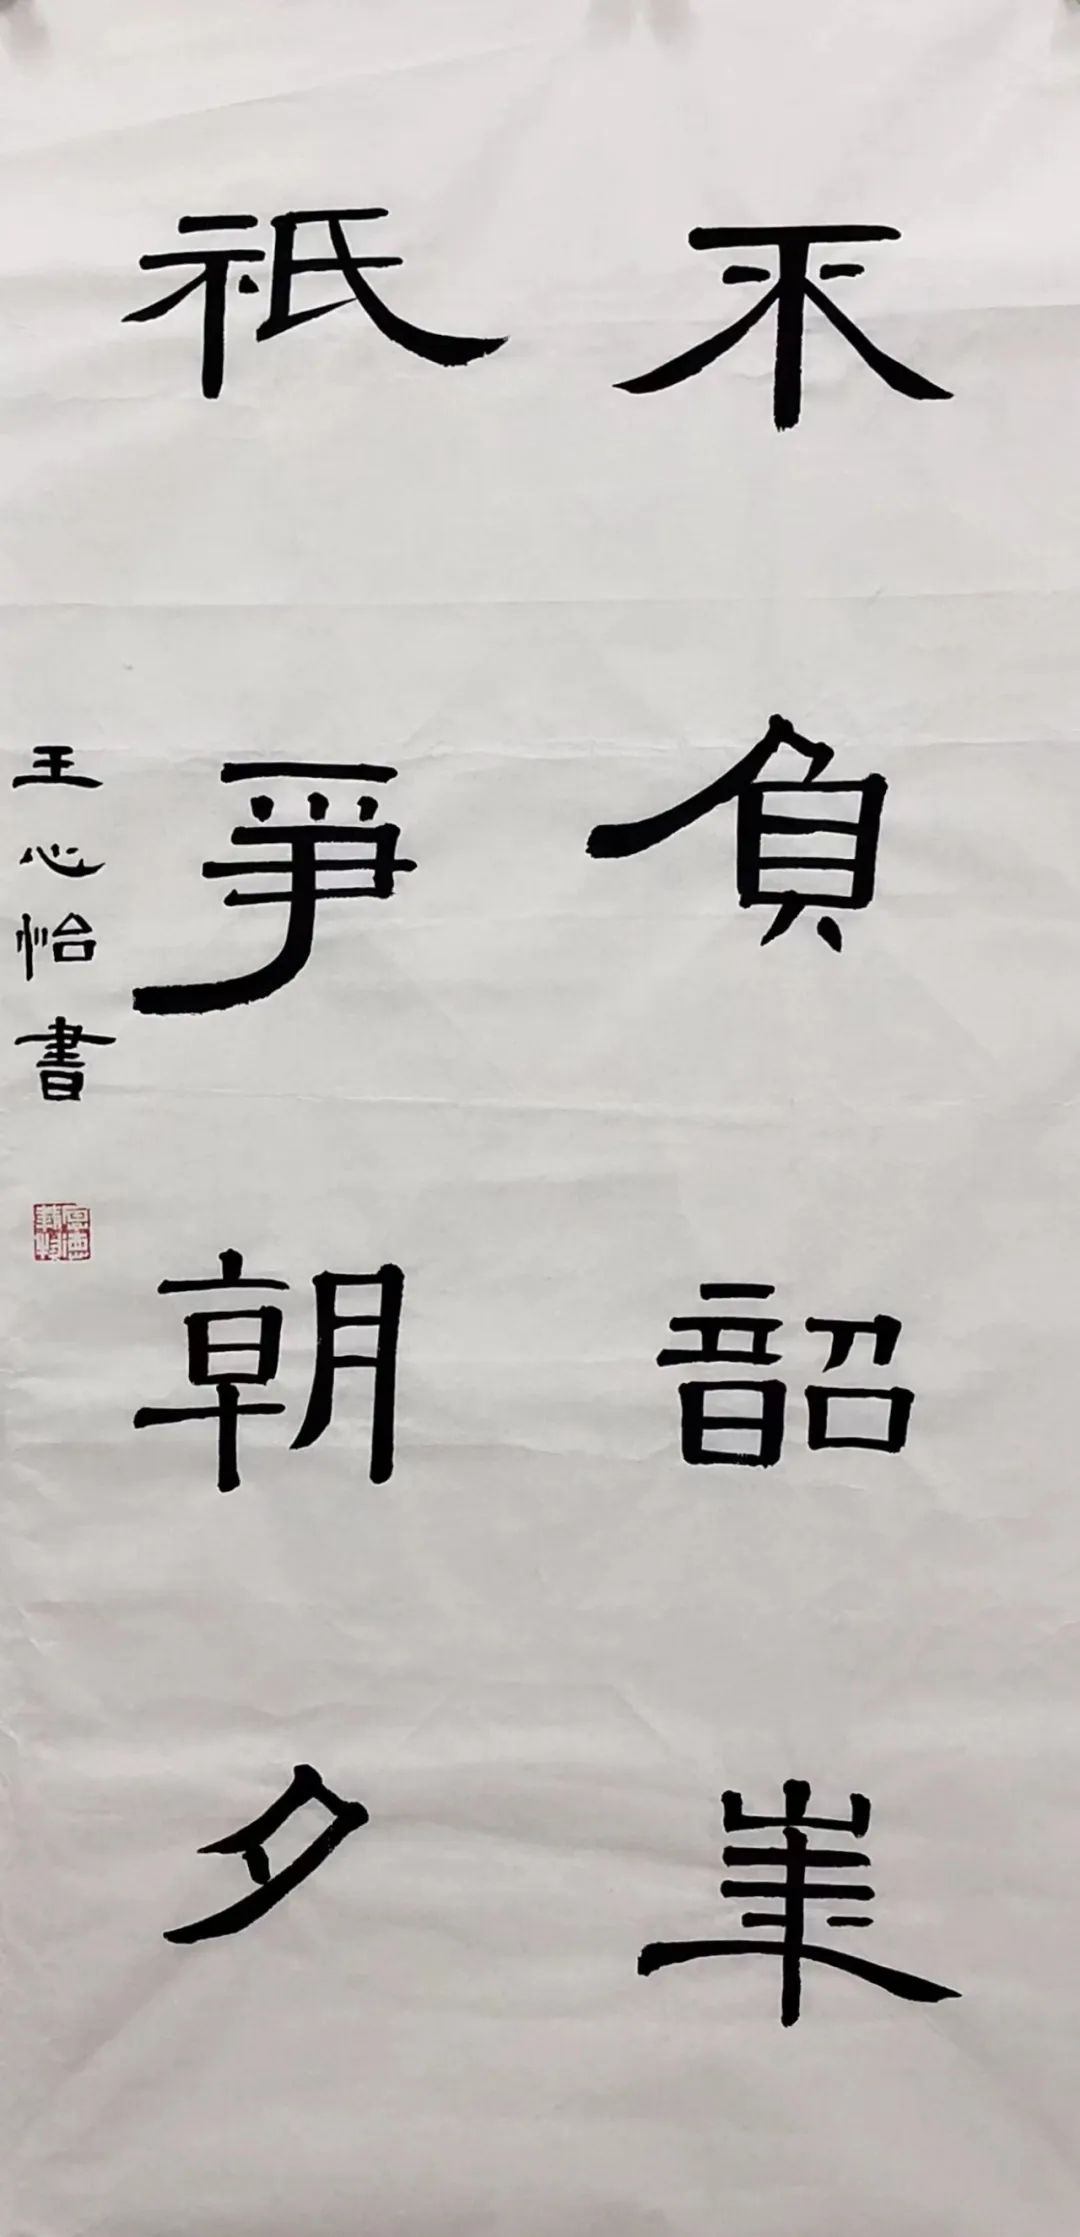 不負韶華
祇爭朝夕
王心怡書